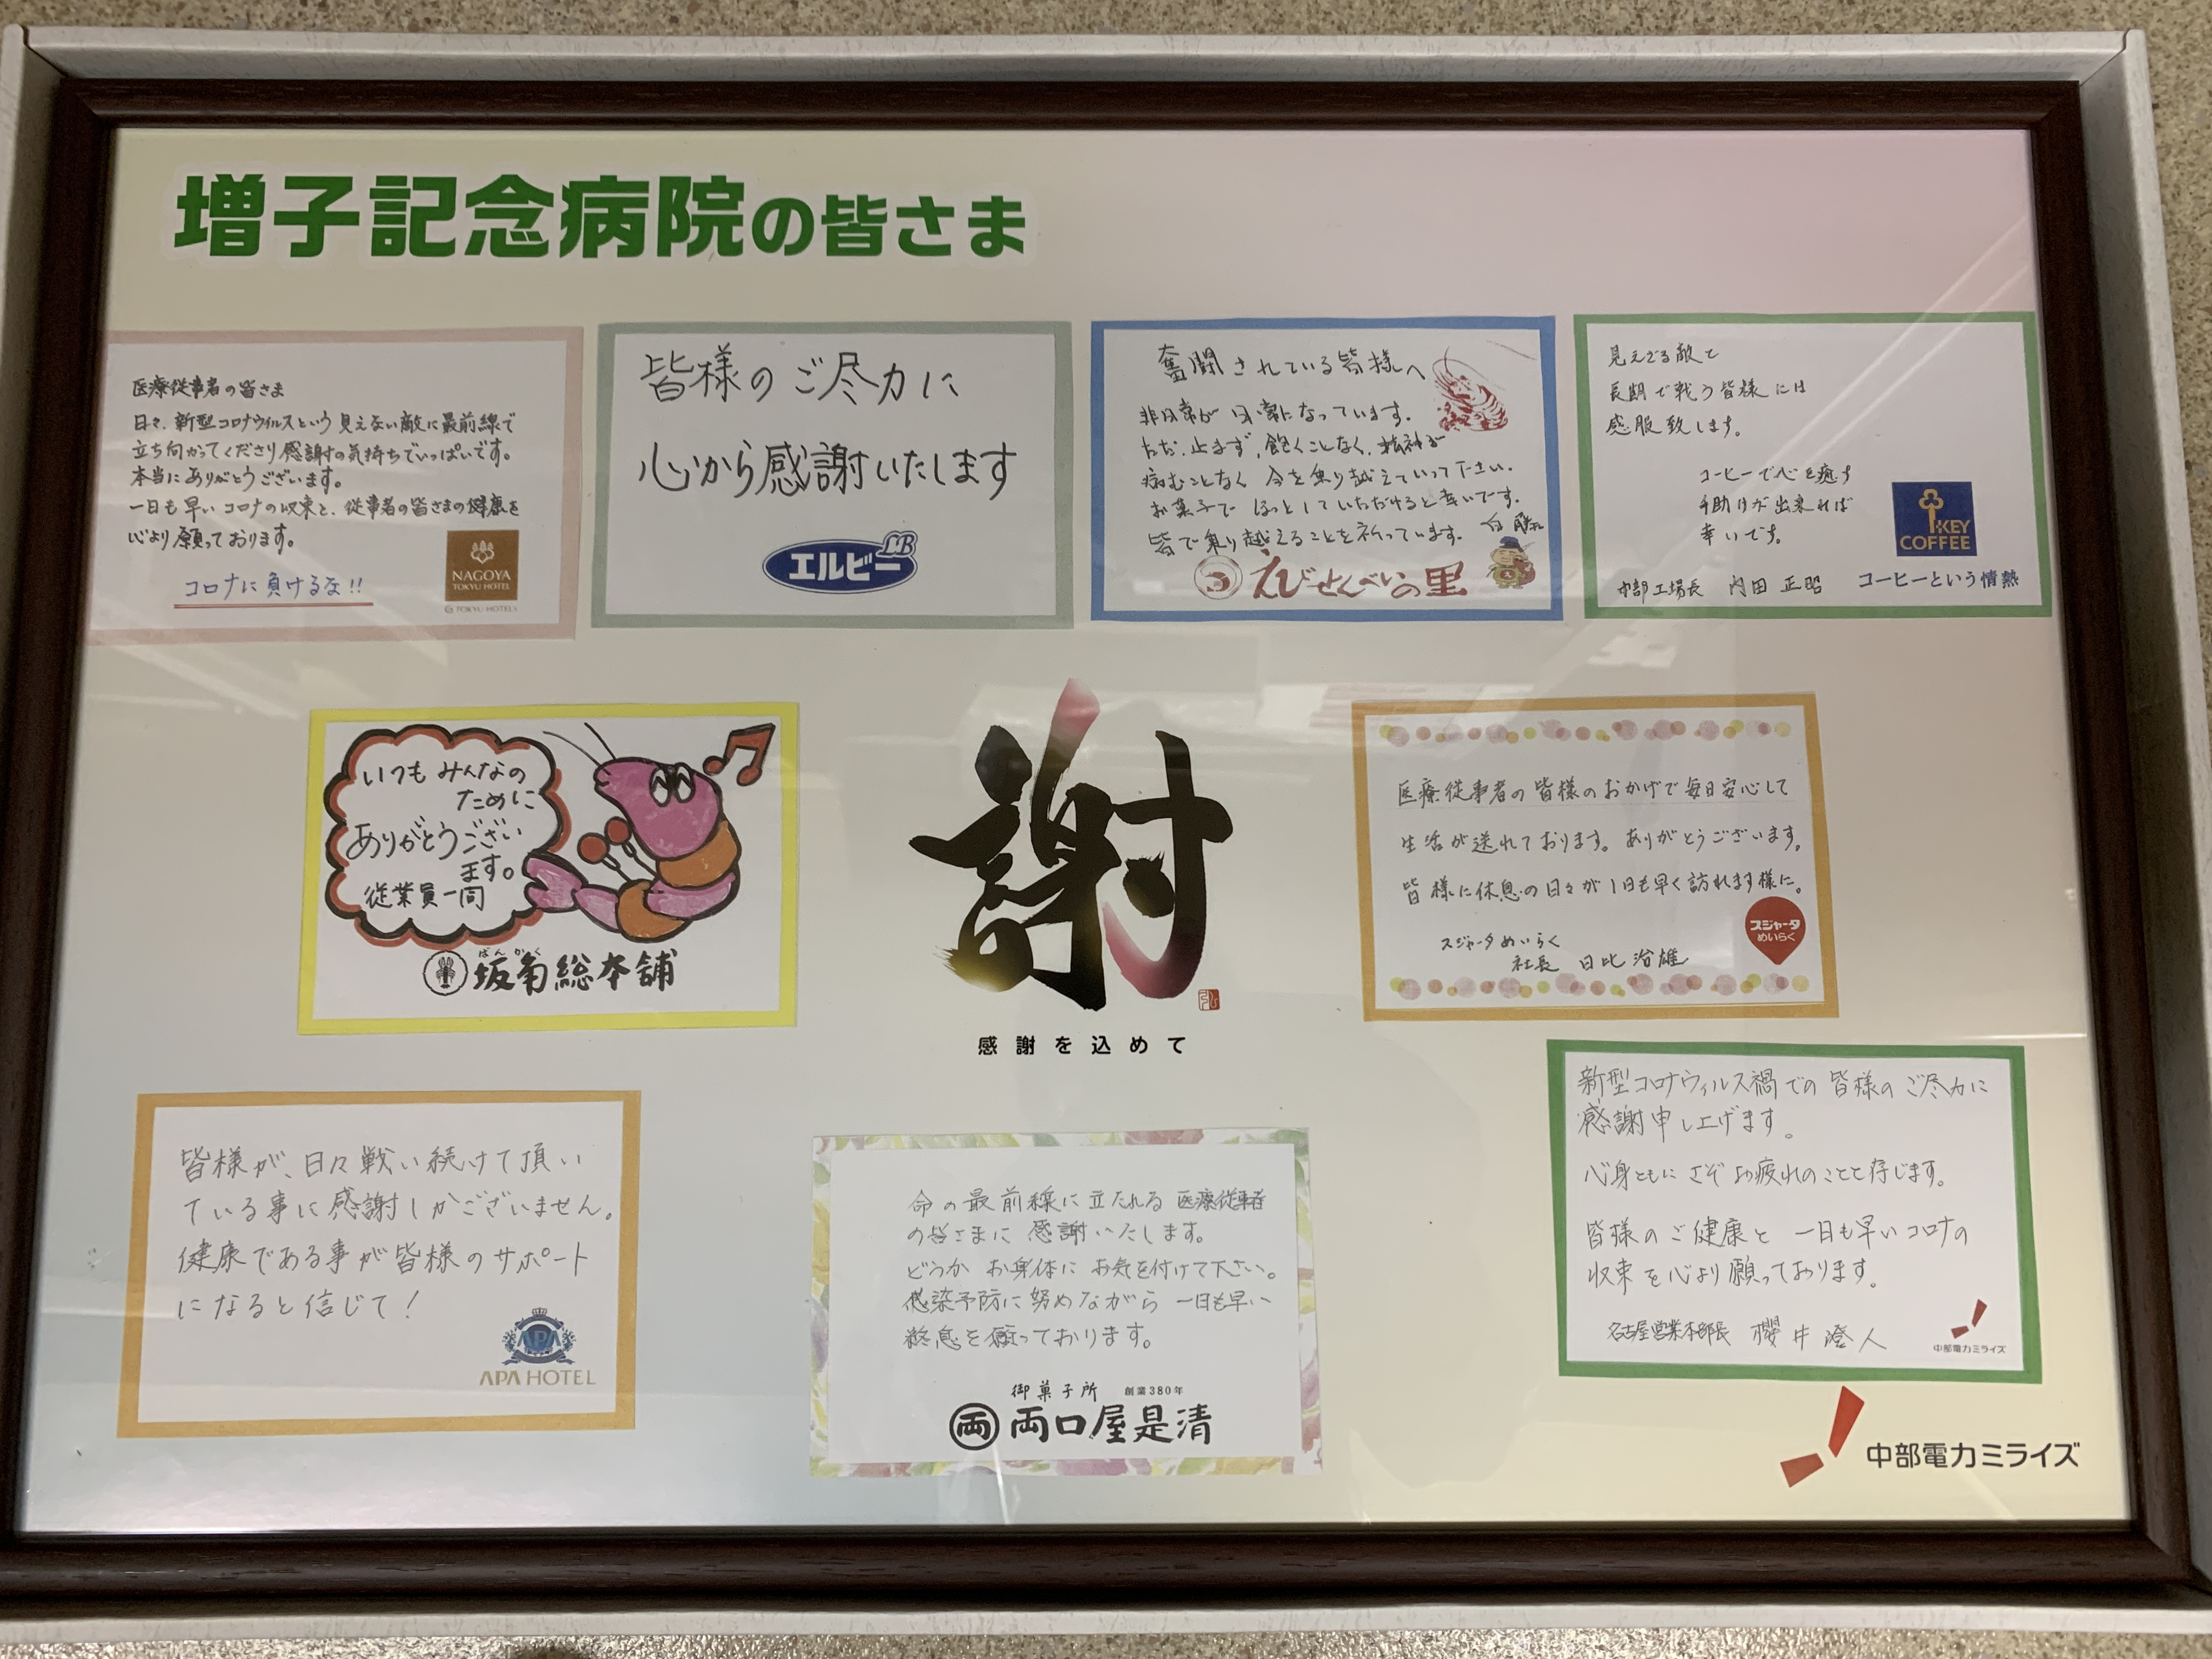 増子記念病院の皆さま
医療従事者の皆さま
日々、新型コロナウイルスという見えない敵に最前線で
立ち向かってくださり感謝の気持ちでいっぱいです。
本当にありがとうございます。
一日も早いコロナの収束と、従事者の皆さまの健康を
心より願っております。
コロナに負けるな!!
NAGOYA
TOKYU HOTEL
TOKYU HOTELS
皆様のご尽力に
心から感謝いたします
エルビー
LB
奮闘されている皆様へ
非日常が日常になっています。
ただ、止まず、飽くことなく、精神が
病むことなく 今を乗り越えていって下さい。
お菓子で ほっとしていただけると幸いです。
皆で乗り越えることを祈っています。
えびせんべいの里
見えざる敵と
長期で戦う皆様には
感服致します。
コーヒーで心を癒す
手助けが出来れば
幸いです。
KEY
COFFEE
中部工場長 内田 正昭
コーヒーという情熱
いつもみんなの
ために
ありがとうござい
ます。
従業員一同
ばんかく
坂角総本舖
謝
感謝を込めて
医療従事者の皆様のおかげで毎日安心して
生活が送れております。ありがとうございます。
皆様に休息の日々が1日も早く訪れます様に。
スジャータめいらく
社長 日比治雄
スジャータ
めいらく
皆様が、日々戦い続けて頂い
ている事に感謝しかございません。
健康である事が皆様のサポート
になると信じて!
APA
APA HOTEL
命の最前線に立たれる医療従事者
の皆さまに 感謝いたします。
どうか お身体に お気を付けて下さい。
感染予防に努めながら 一日も早い
終息を願っております。
御菓子所 創業380年
両 両口屋是清
新型コロナウィルス禍での皆様のご尽力に
感謝申し上げます。
心身ともにさぞお疲れのことと存じます。
皆様のご健康と 一日も早いコロナの
収束を心より願っております。
名古屋営業本部長 櫻井澄人
中部電力ミライズ
中部電力ミライズ